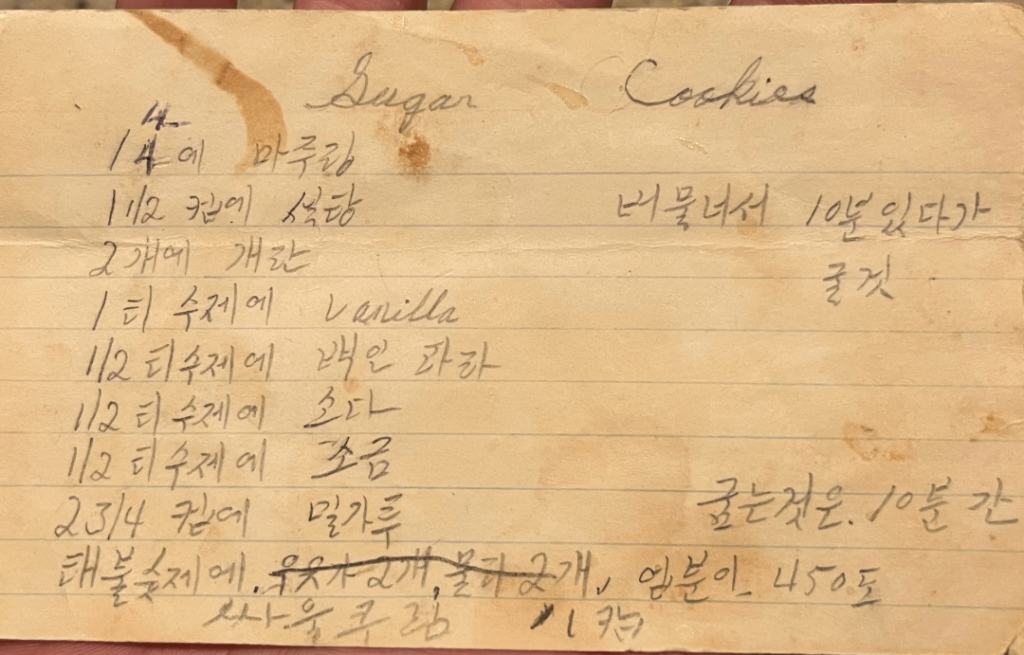 Sugar Cookies
4
1 4에 마주링
1 1/2 컵에 설탕
버물너서 10분있다가
2개에 개란
굴것
1 티 수제에 Vanilla
1/2 티수제에 백인 파라
1/2 티수제에 소다
1/2 티수제에 소금
2 3/4 컵에 밀가투
굽는것은. 10분간
태불숫제에. 우웃가 2개, 물타 2개, 엄분이 450도
싸울쿠림 1 컵